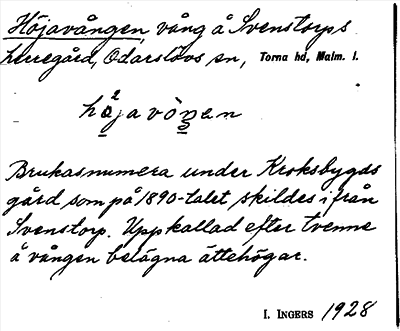 Höjavången, vång å Svenstorps
herregård, Odarslövs sn, Torna hd, Malm. l.
hö²javòŋen
Brukas numera under Kroksbygds
gård som på 1890-talet skildes ifrån
Svenstorp. Uppkallad efter tvenne
å vången belägna ättehögar.
I. INGERS 1928